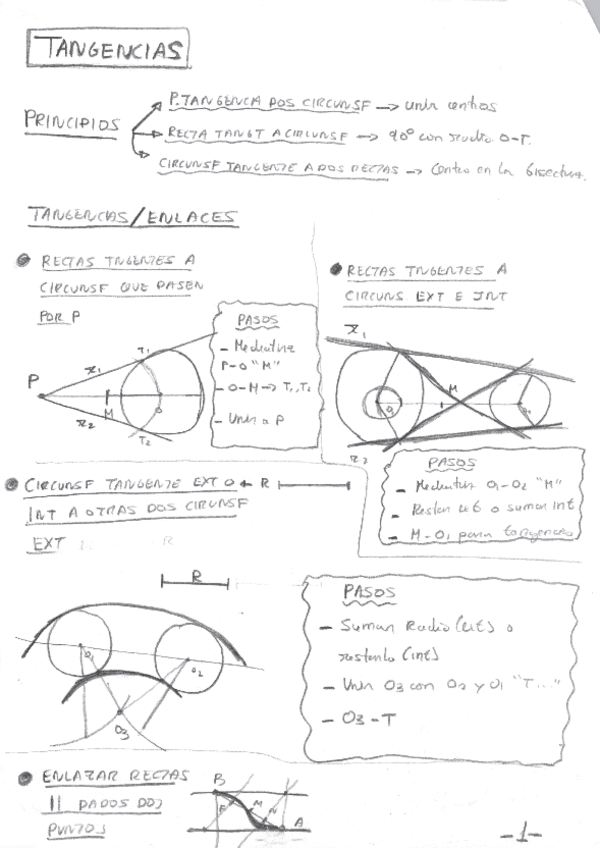 TANGENCIAS
PRINCIPIOS
P. TANGENCIA DOS CIRCUNSF → unir centros
RECTA TANGT A CIRCUNSF → 90° con radio O-T.
CIRCUNSF TANGENTE A DOS RECTAS → Centro en la bisectriz.
TANGENCIAS/ENLACES
RECTAS TNGENTES A
CIRCUNSF QUE PASEN
POR P
PASOS
- Mediatriz
P-O "M"
- O-M → T1, T2
- Unir a P
P
r1
r2
T1
T2
M
O
RECTAS TNGENTES A
CIRCUNS EXT E INT
r1
r2
M
O1
O2
PASOS
- Mediatriz O1-O2 "M"
- Restar ext o sumar int
- M-O1 para tangencias
CIRCUNSF TANGENTE EXT O ← R
INT A OTRAS DOS CIRUNSF
EXT
R
O1
O2
O3
PASOS
- Sumar Radio (ext) o
restarlo (int)
- Unir O3 con O2 y O1 "T..."
- O3-T
ENLAZAR RECTAS
|| DADOS DOS
PUNTOS
B
F
M
N
A
-1-